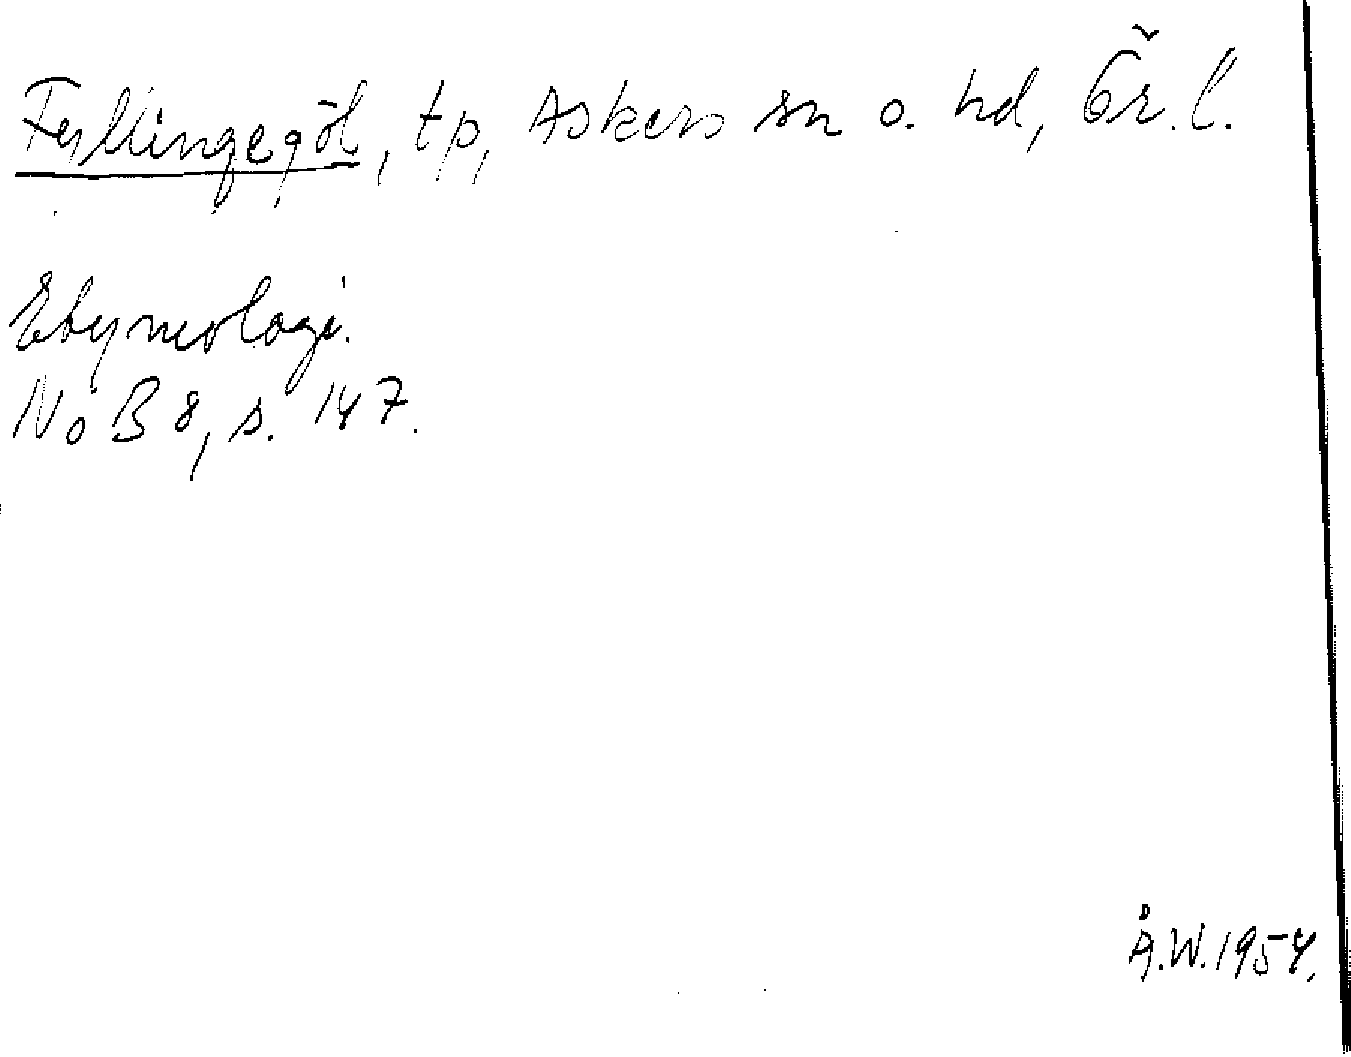 Fyllingegöl, tp, Askers sn o. hd, Ör. l.
Etymologi.
NoB 8, s. 147.
Å.W. 1954.